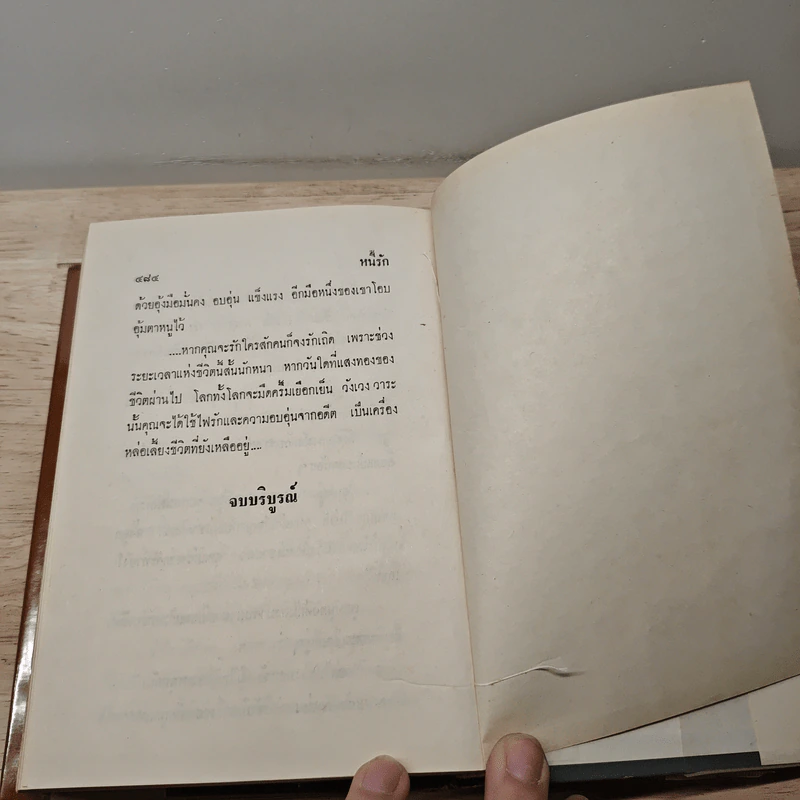 ๔๘๔
หนี้รัก
ด้วยอุ้งมือมั่นคง อบอุ่น แข็งแรง อีกมือหนึ่งของเขาโอบ
อุ้มตาหนูไว้
....หากคุณจะรักใครสักคนก็จงรักเถิด เพราะช่วง
ระยะเวลาแห่งชีวิตนี้สั้นนักหนา หากวันใดที่แสงทองของ
ชีวิตผ่านไป โลกทั้งโลกจะมืดครึ้มเยือกเย็น วังเวง วาระ
นั้นคุณจะได้ใช้ไฟรักและความอบอุ่นจากอดีต เป็นเครื่อง
หล่อเลี้ยงชีวิตที่ยังเหลืออยู่....
จบบริบูรณ์